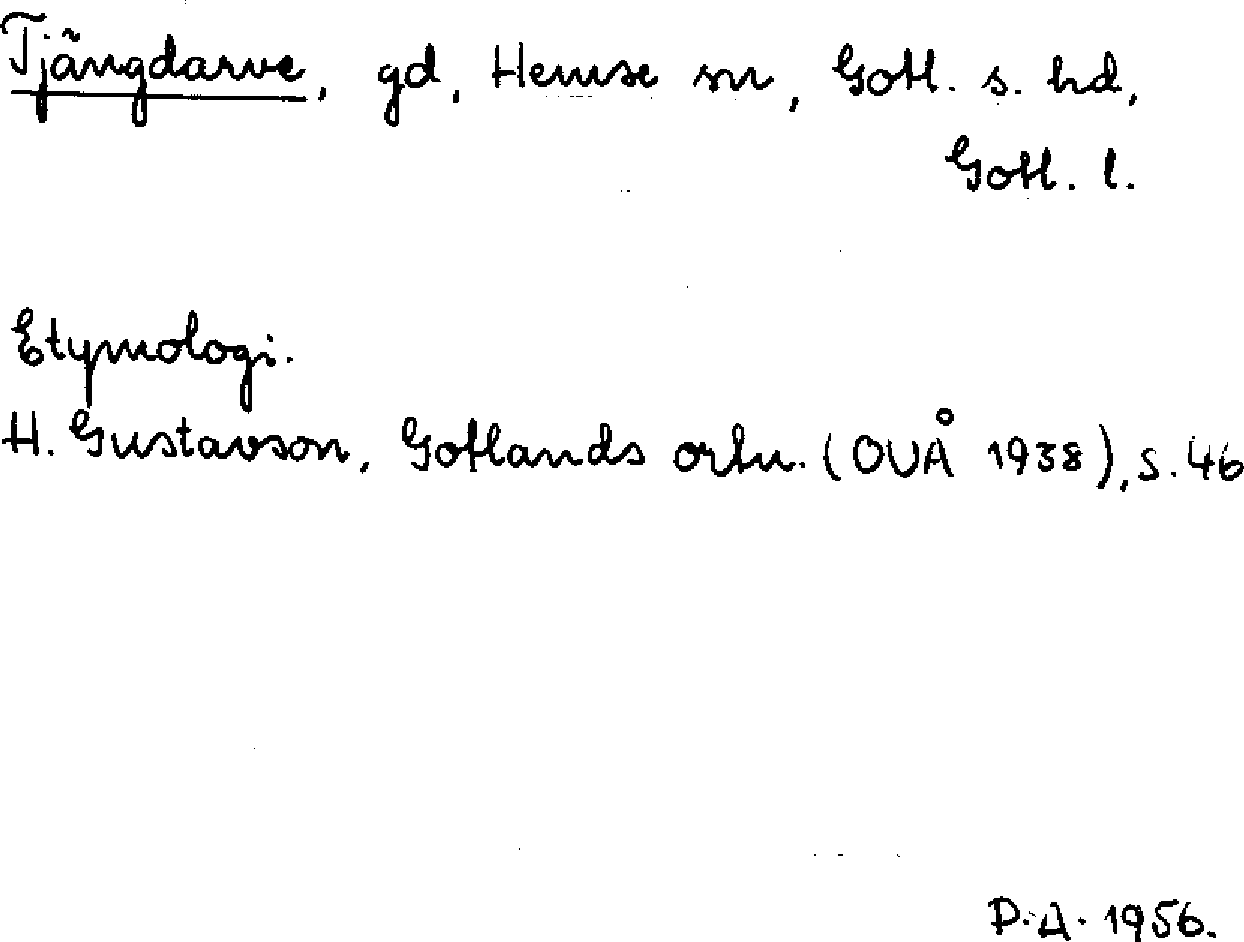 Tjängdarve, gd, Hemse sn, Gotl. s. hd,
Gotl. l.
Etymologi.
H. Gustavson, Gotlands ortn. (OUÅ 1938), s. 46
P.A. 1956.